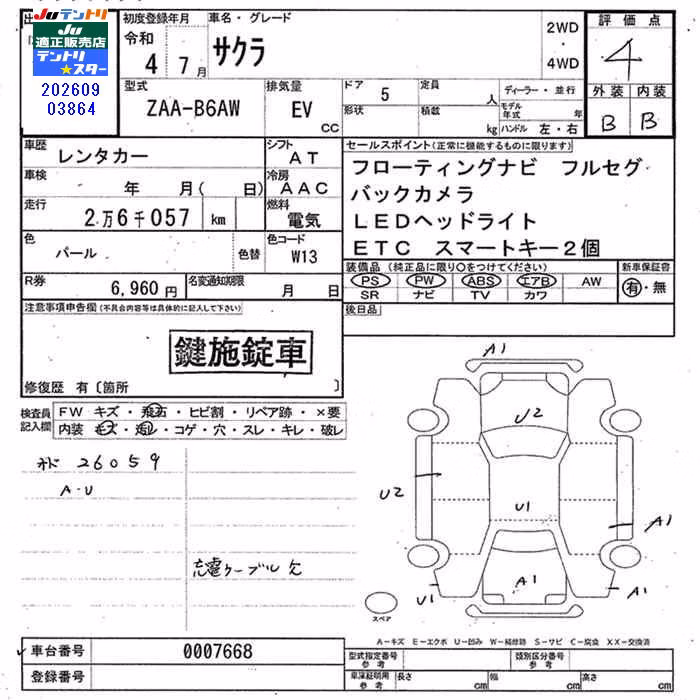 出
Juテントリ
JU
適正販売店
テントリ
★スター
202609
03864
初度登録年月
令和
4 7月
車名・グレード
サクラ
2WD
4WD
評価点
4
外装 内装
B B
型式
ZAA-B6AW
排気量
EV
CC
ドア 5
形状
定員 人
積載 kg
ディーラー・並行
モデル年式 年
ハンドル 左・右
車歴
レンタカー
シフト
AT
車検
年 月( 日)
冷房
AAC
走行
2万6千057 km
燃料
電気
色
パール
色替
色コード
W13
R券
6,960円
名変通知期限
月 日
セールスポイント(正常に機能するものに限ります)
フローティングナビ フルセグ
バックカメラ
LEDヘッドライト
ETC スマートキー2個
装備品(純正品に限り○をつけてください)
PS PW ABS エアB AW
SR ナビ TV カワ
新車保証書
有・無
後日品
注意事項申告欄(不具合内容等は具体的に記入して下さい)
鍵施錠車
修復歴 有〔箇所 〕
検査員
記入欄
FW キズ・飛石・ヒビ割・リペア跡・×要
内装 キズ・汚レ・コゲ・穴・スレ・キレ・破レ
26059
A-U
充電ケーブル欠
A1
U2
U2
U1
A1
A1
U1
A1
スペア
A-キズ E-エクボ U-凹み W-補修跡 S-サビ C-腐食 XX-交換済
車台番号
0007668
登録番号
型式指定番号
参考
類別区分番号
参考
車庫証明用
参考
長さ cm
幅 cm
高さ cm